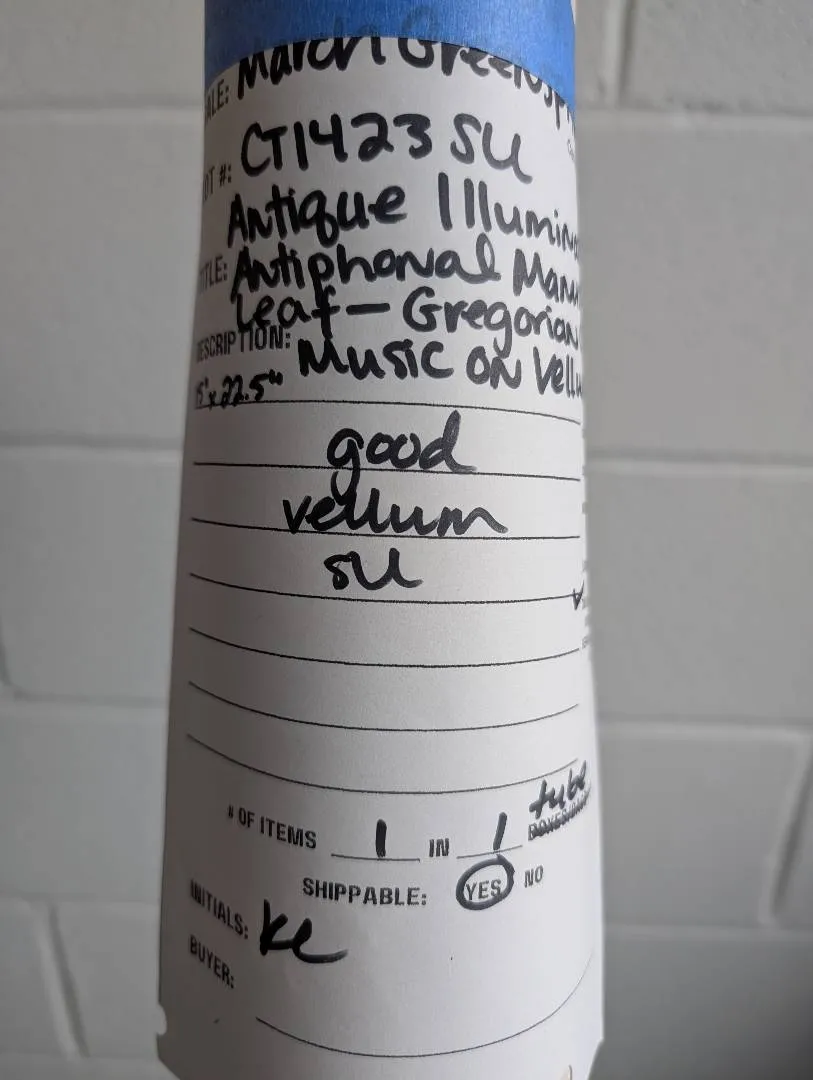 ALE: March Greensp
OT #: CT1423 SU
Antique Illumin
ITLE: Antiphonal Manu
Leaf - Gregorian
DESCRIPTION: Music on Vellu
15" x 22.5"
good
vellum
SU
# OF ITEMS 1 IN 1 tube
SHIPPABLE: YES NO
INITIALS: KL
BUYER: